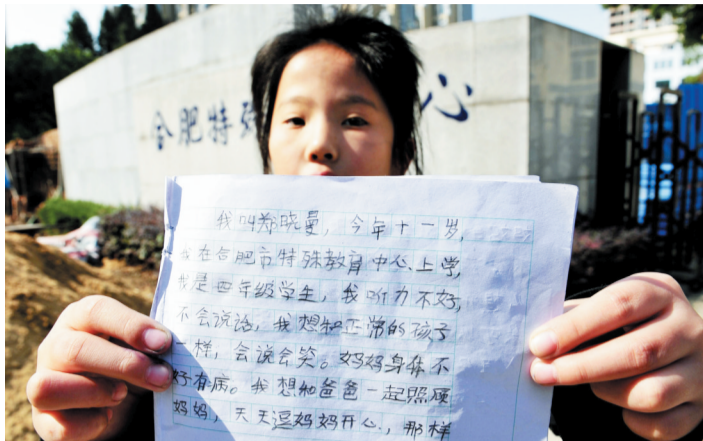 合肥特殊 心
我叫郑晓曼，今年十一岁，
我在合肥市特殊教育中心上学，
我是四年级学生，我听力不好，
不会说话，我想和正常的孩子
一样，会说会笑。妈妈身体不
好有病。我想和爸爸一起照顾
妈妈，天天逗妈妈开心，那样